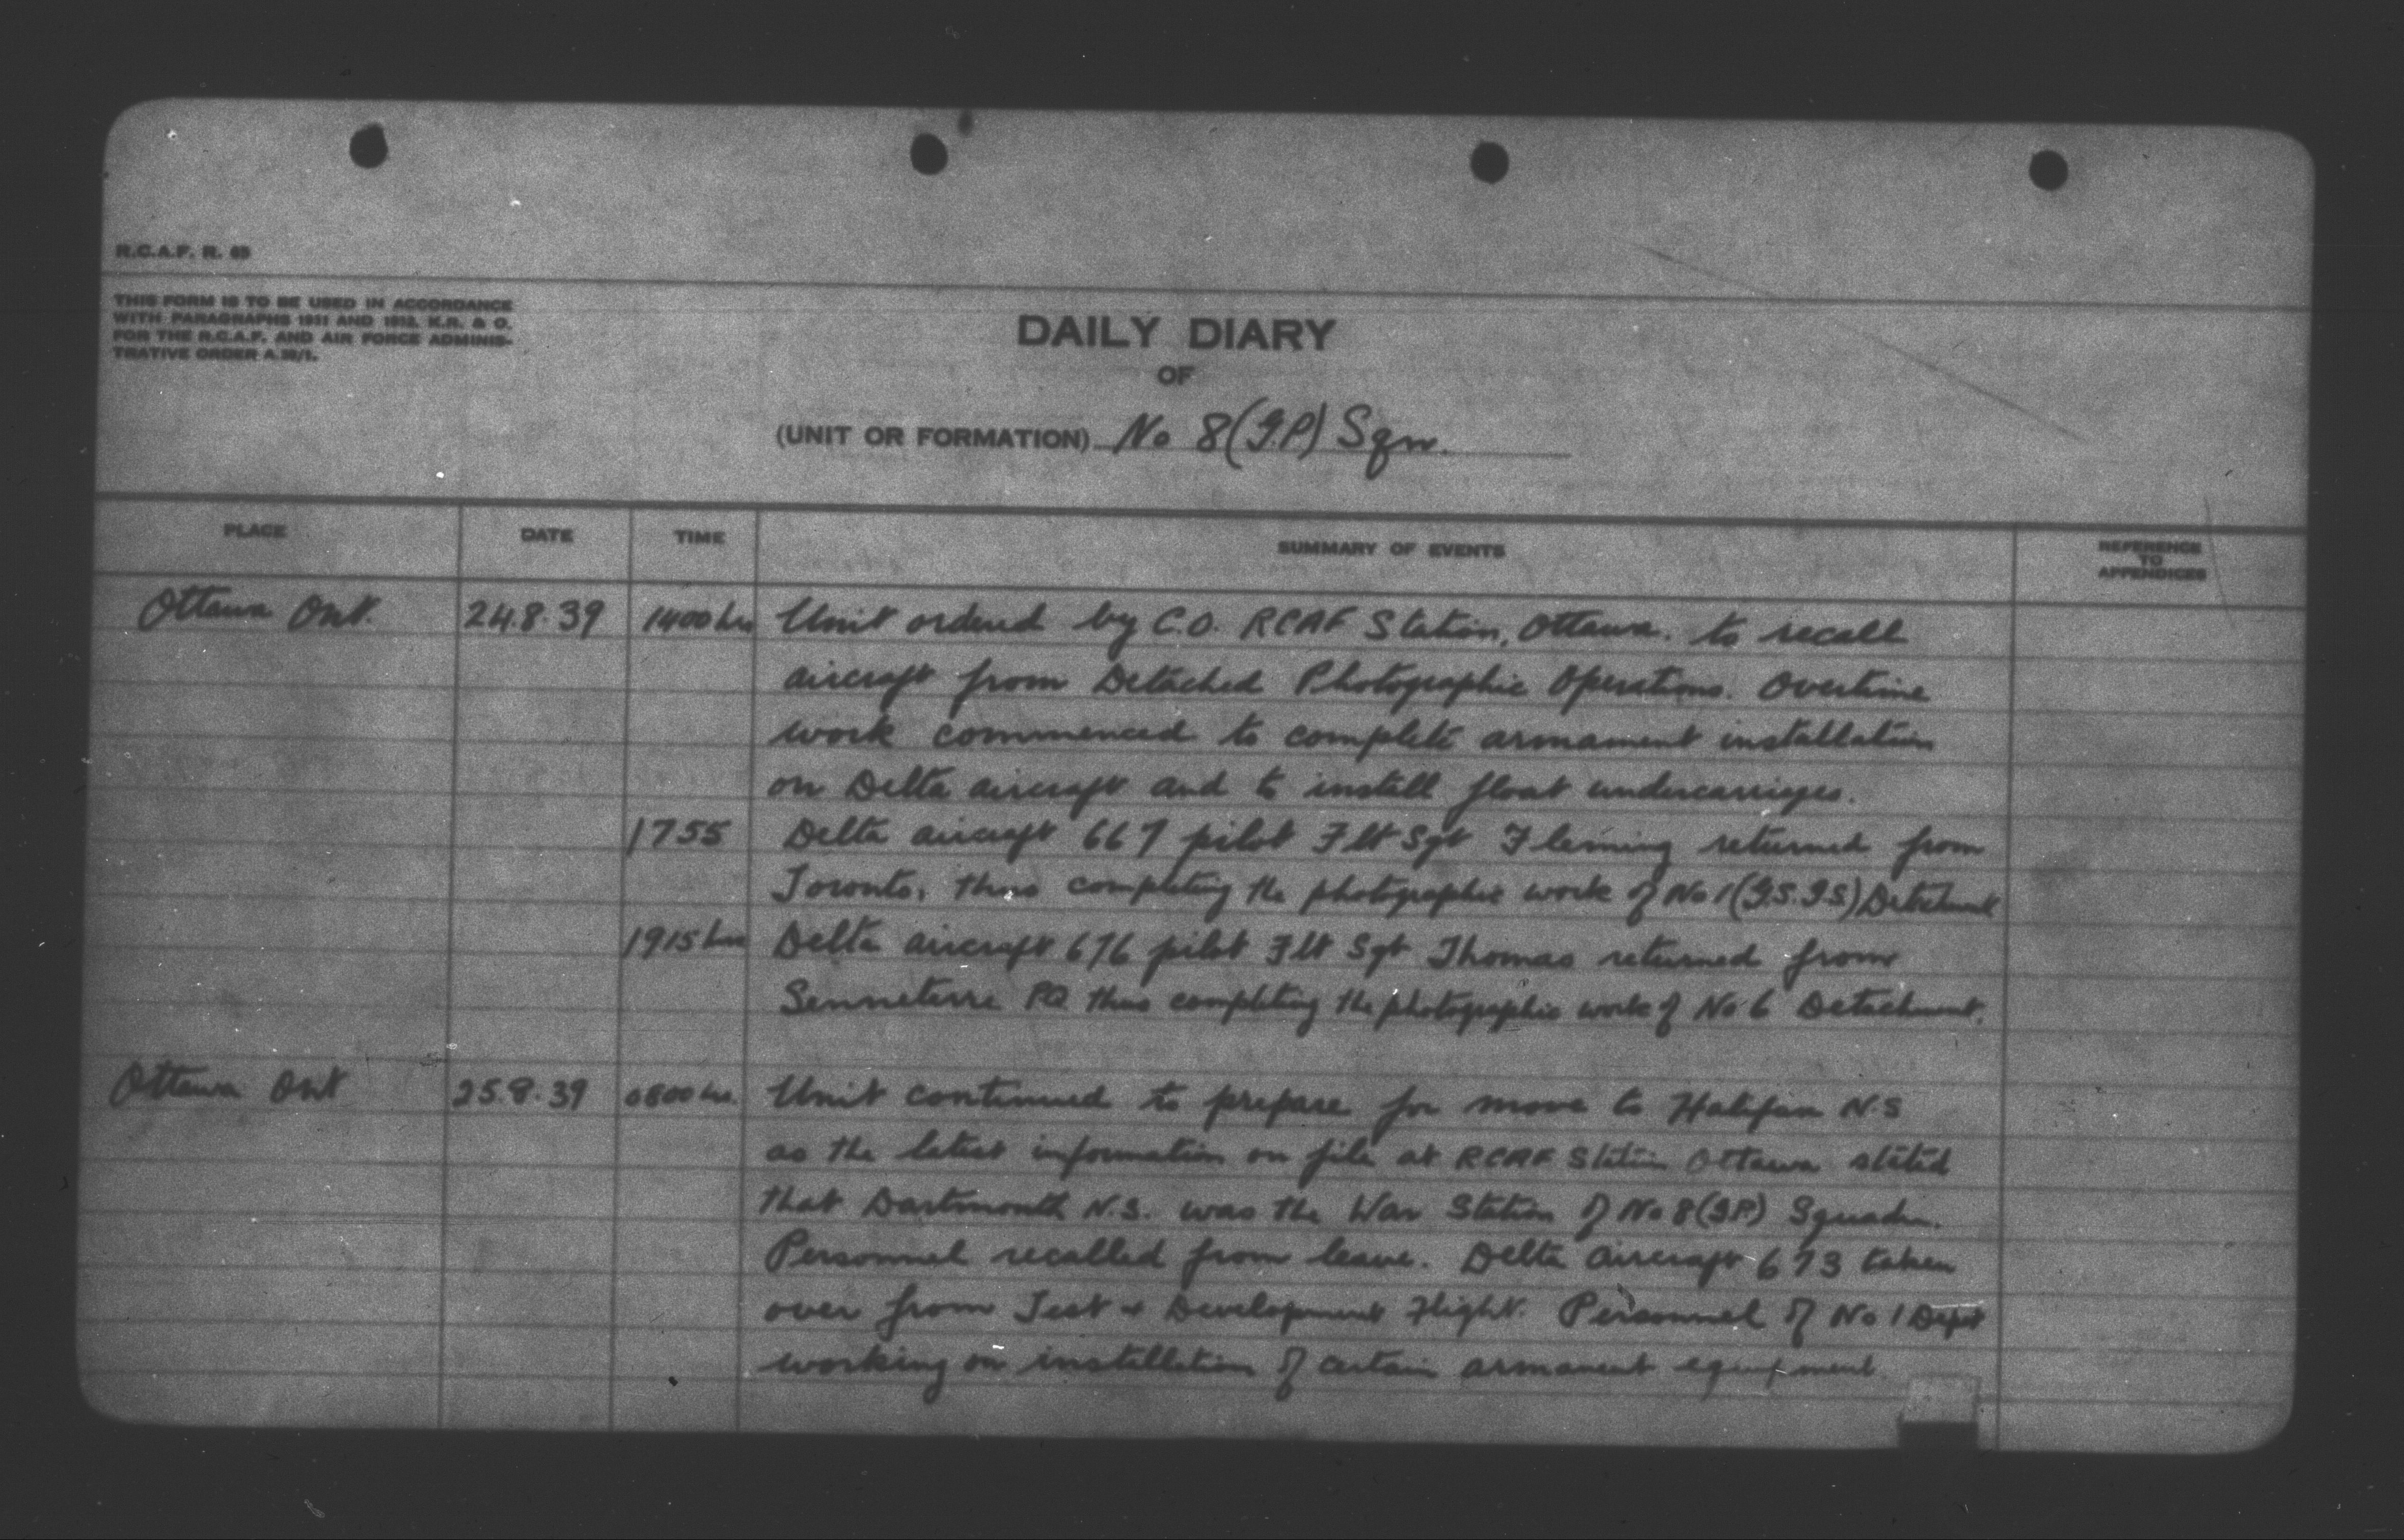 R.C.A.F. R. 65
THIS FORM IS TO BE USED IN ACCORDANCE
WITH PARAGRAPHS 1931 AND 1932, K.R. & O.
FOR THE R.C.A.F. AND AIR FORCE ADMINIS-
TRATIVE ORDER A.30/1.
DAILY DIARY
OF
(UNIT OR FORMATION) No 8 (G.P) Sqn.
PLACE DATE TIME SUMMARY OF EVENTS REFERENCE
TO
APPENDICES
Ottawa Ont. 24.8.39 1400 hrs Unit ordered by C.O. RCAF Station, Ottawa. to recall
aircraft from Detached Photographic Operations. Overtime
work commenced to complete armament installation
on Delta aircraft and to install float undercarriages.
1755 Delta aircraft 667 pilot Flt Sgt Fleming returned from
Toronto, thus completing the photographic work of No 1 (G.S.G.S) Detachment
1915 hrs Delta aircraft 676 pilot Flt Sgt Thomas returned from
Senneterre PQ thus completing the photographic work of No 6 Detachment.
Ottawa Ont 25.8.39 0800 hrs. Unit continued to prepare for move to Halifax N.S
as the latest information on file at RCAF Station Ottawa stated
that Dartmouth N.S. was the War Station of No 8 (GP) Squadn.
Personnel recalled from leave. Delta aircraft 673 taken
over from Test + Development Flight. Personnel of No 1 Depot
working on installation of certain armament equipment.